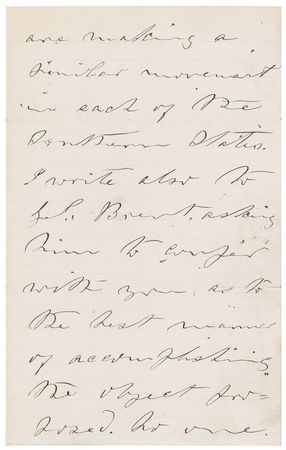 are making a
similar movement
in each of the
Southern States.
I write also to
Brent, asking
him to confer
with you as to
the best manner
of accomplishing
the object pro=
posed. No one.